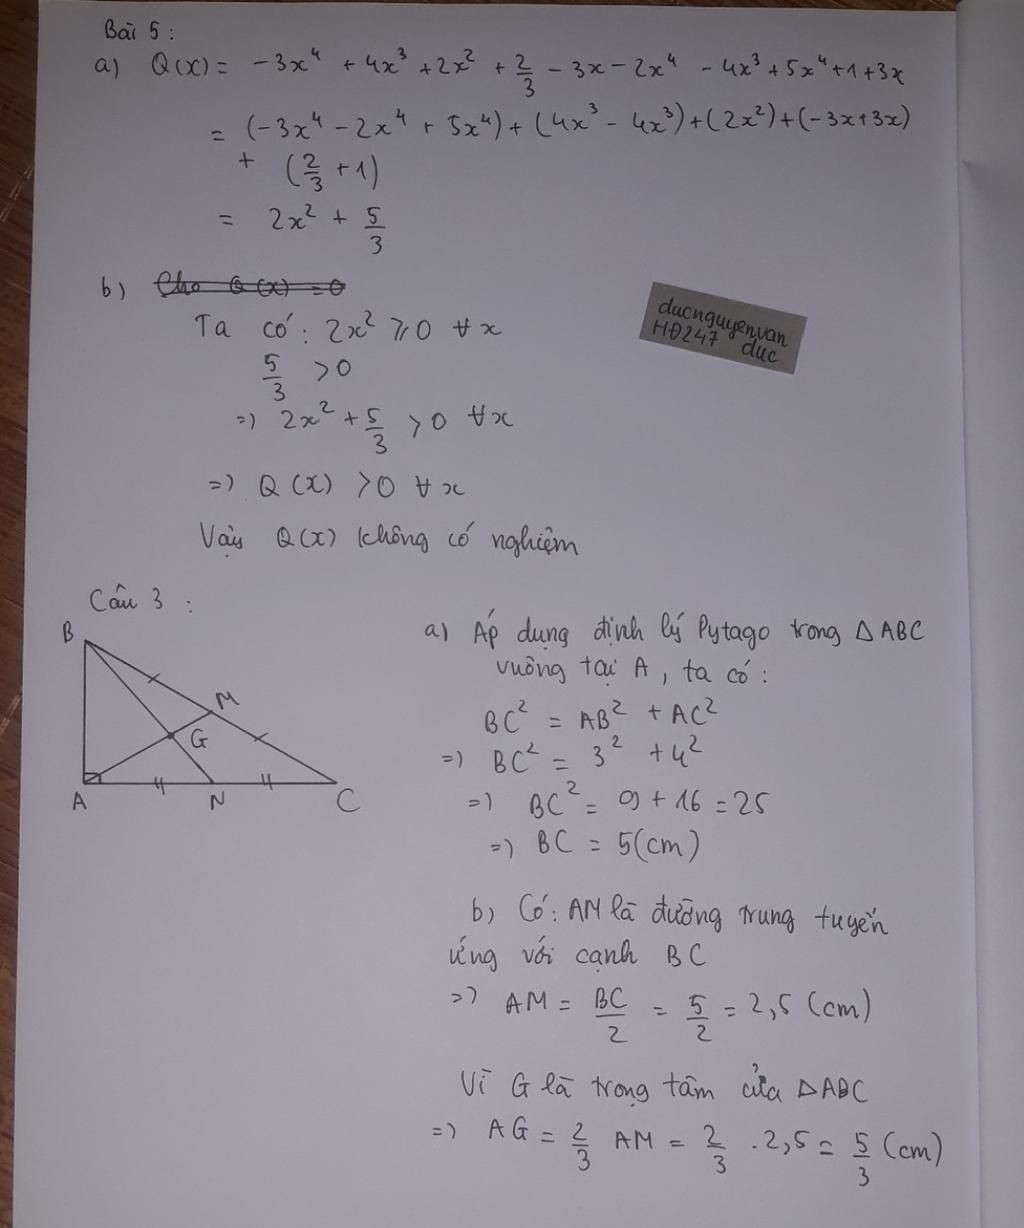 Bài 5 :
a) Q(x) = -3x⁴ + 4x³ + 2x² + 2/3 - 3x - 2x⁴ - 4x³ + 5x⁴ + 1 + 3x
= (-3x⁴ - 2x⁴ + 5x⁴) + (4x³ - 4x³) + (2x²) + (-3x + 3x)
+ (2/3 + 1)
= 2x² + 5/3
b) Cho Q(x) = 0
Ta có : 2x² ⩾ 0 ∀x
5/3 > 0
=> 2x² + 5/3 > 0 ∀x
=> Q(x) > 0 ∀x
Vậy Q(x) không có nghiệm
ducnguyenvan
HĐ247 duc
Câu 3 :
B
M
G
A N C
a) Áp dụng định lý Pytago trong ΔABC
vuông tại A, ta có :
BC² = AB² + AC²
=> BC² = 3² + 4²
=> BC² = 9 + 16 = 25
=> BC = 5(cm)
b) Có : AM là đường trung tuyến
ứng với cạnh BC
=> AM = BC/2 = 5/2 = 2,5 (cm)
Vì G là trọng tâm của ΔABC
=> AG = 2/3 AM = 2/3 . 2,5 = 5/3 (cm)